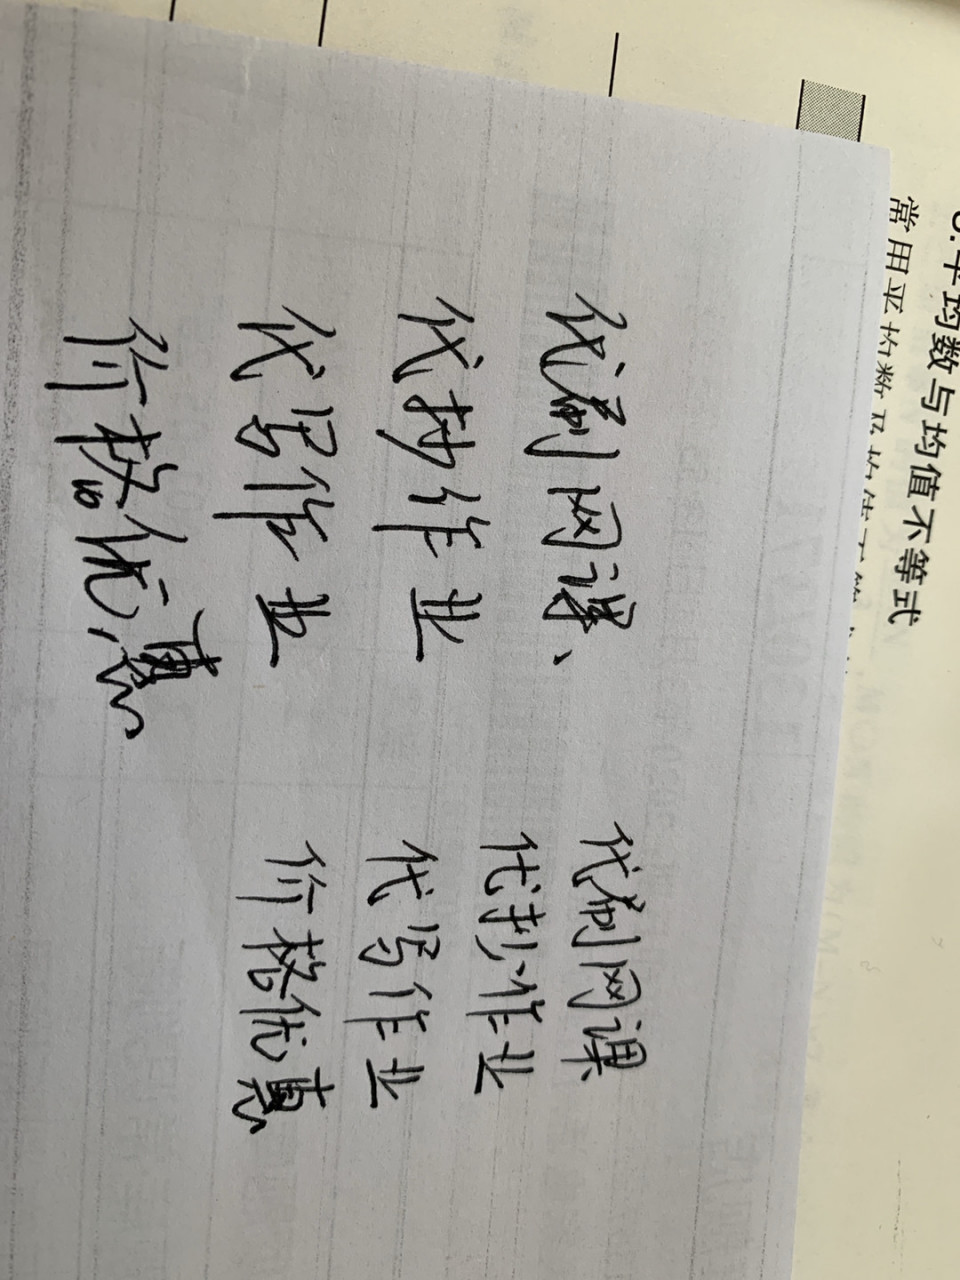 平均数与均值不等式
常用平均数及均值不等
代刷网课、
代抄作业
代写作业
价格优惠
代刷网课
代抄作业
代写作业
价格优惠